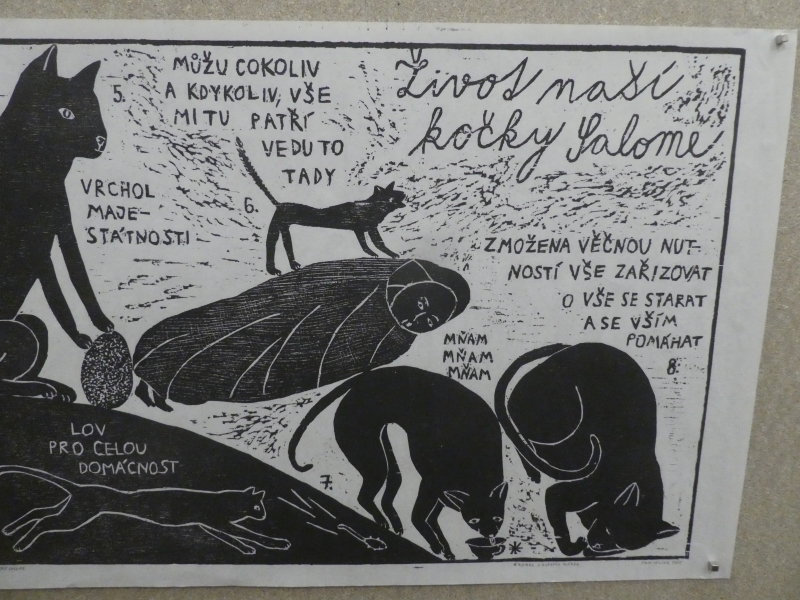 Život naší
kočky Salome
5.
VRCHOL
MAJE-
STÁTNOSTI
MŮŽU COKOLIV
A KDYKOLIV, VŠE
MI TU PATŘÍ
VEDU TO
TADY
6.
ZMOŽENA VĚČNOU NUT-
NOSTÍ VŠE ZAŘIZOVAT
O VŠE SE STARAT
A SE VŠÍM
POMÁHAT
8.
MŇAM
MŇAM
MŇAM
7.
LOV
PRO CELOU
DOMÁCNOST
*